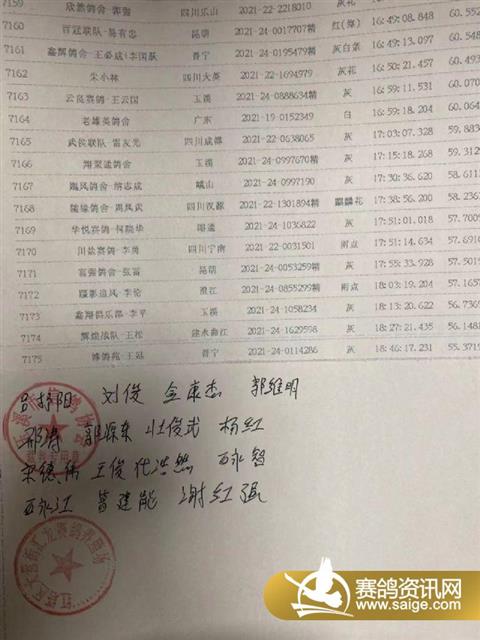 7159 欣然鸽舍-郭强 四川乐山 2021-22-2218010 灰花 16:49:08.848 60.552
7160 百冠联队-易有忠 昆明 2021-24-0017707精 红(绛) 16:49:13.097 60.548
7161 鑫辉鸽舍-王必成+李国跃 晋宁 2021-24-0195479精 灰白条
7162 朱小林 四川大英 2021-22-1694979 灰花 16:50:21.457 60.493
7163 云良赛鸽-王云国 玉溪 2021-24-0888634精 灰 16:59:11.531 60.070
7164 老雄英鸽舍 广东 2021-19-0152349 白 16:59:18.204 60.064
7165 武侯联队-雷友光 四川成都 2021-22-0638065 灰 17:03:07.328 59.883
7166 翔聚孟鸽舍 玉溪 2021-24-0997670精 灰 17:15:18.268 59.312
7167 飓风鸽舍- 志成 峨山 2021-24-0997190 灰 17:30:36.620 58.611
7168 随缘鸽舍-周凤武 四川汉源 2021-22-1301894精 麒麟花 17:38:56.200 58.236
7169 华悦赛鸽-何晓华 昭通 2021-24-1036822 灰 17:51:01.018 57.700
7170 川盐赛鸽-李勇 四川宁南 2021-22-0031501 雨点 17:51:14.634 57.691
7171 富强鸽舍-张富 昆明 2021-24-0053259精 灰 17:55:33.928 57.50
7172 蹑影追风-李伦 澄江 2021-24-0855299精 雨点 18:03:19.204 57.16
7173 鑫翔俱乐部-李平 玉溪 2021-24-1058234 灰 18:13:20.622 56.736
7174 辉煌战队-王松 建水曲江 2021-24-1629598 灰 18:27:21.435 56.148
7175 雄鸽苑-王冠 晋宁 2021-24-0114286 灰 18:46:17.231 55.371
刘俊 金康杰 郭维明
邵涛 郭源东 杜俊武 杨红
宋德伟 王俊 代浩然 西永智
西永江 曾建能 谢红强
赛鸽资讯网
www.saige.com